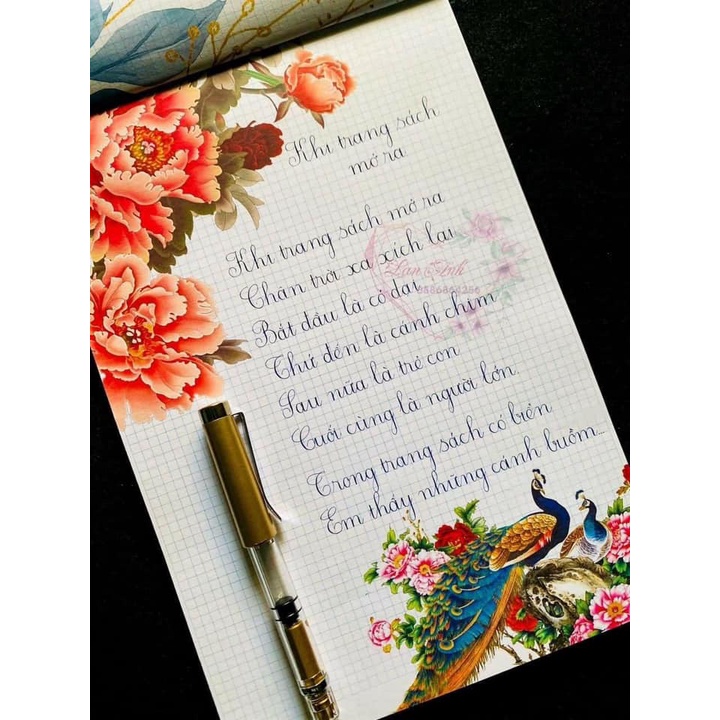 Khi trang sách
mở ra
Khi trang sách mở ra
Chân trời xa xích lại
Bắt đầu là cỏ dại
Thứ đến là cánh chim
Sau nữa là trẻ con
Cuối cùng là người lớn.
Trong trang sách có biển
Em thấy những cánh buồm...
Lan Anh